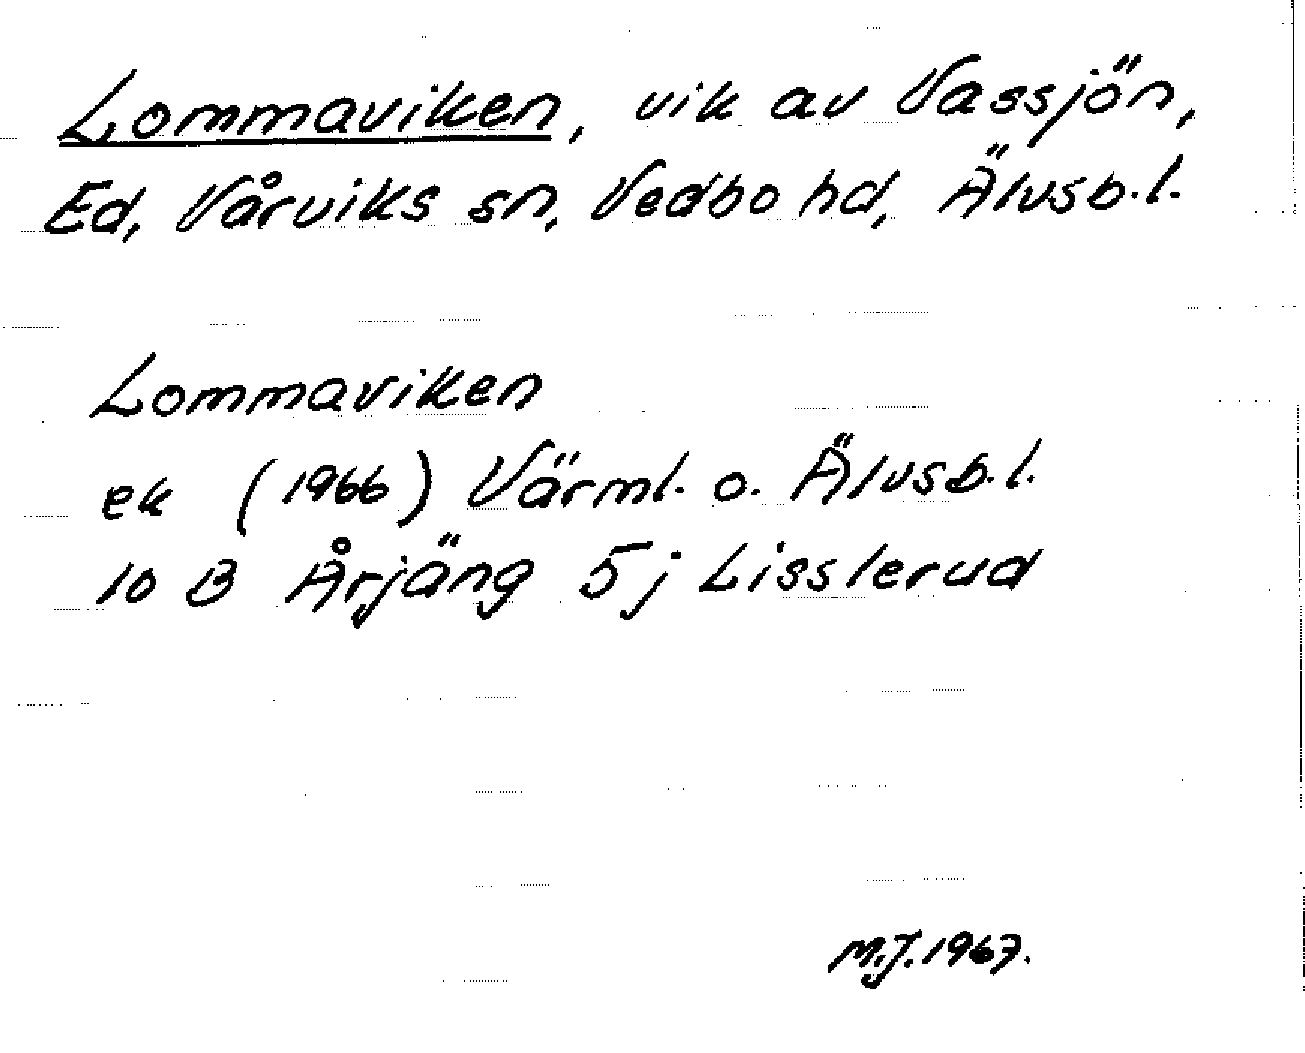 Lommaviken, vik av Vassjön,
Ed, Vårviks sn, Vedbo hd, Älvsb.l.
Lommaviken
ek (1966) Värml. o. Älvsb.l.
10 B Årjäng 5j Lisslerud
M.J. 1967.